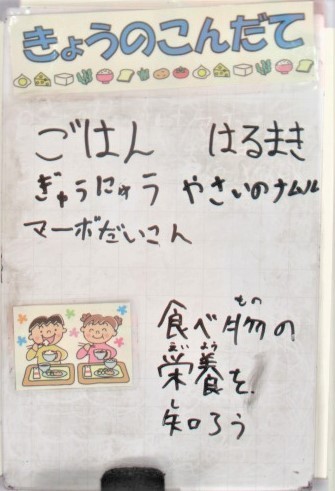 きょうのこんだて
ごはん はるまき
ぎゅうにゅう やさいのナムル
マーボだいこん
食べ物の
栄養を
知ろう